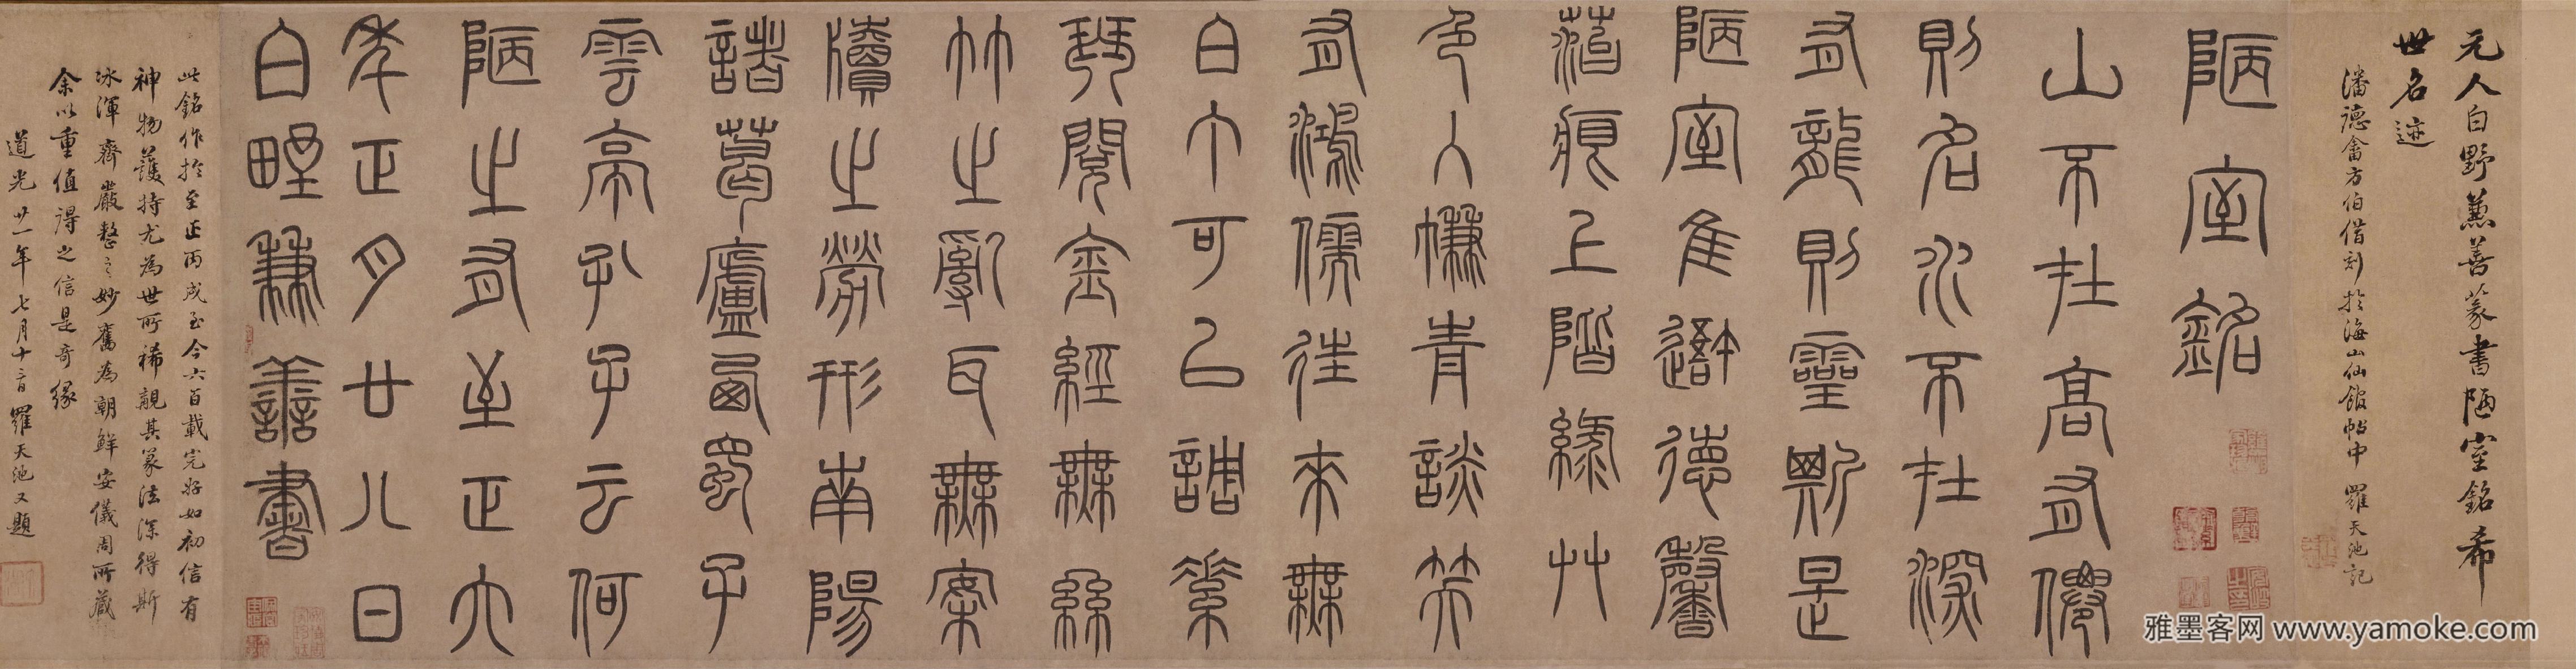 元人白野兼善篆書陋室銘希
世名迹
潘德畬方伯借刻於海山仙館帖中 羅天池記
陋室銘
山不在高有僊
則名水不在深
有龍則靈斯是
陋室惟吾德馨
苔痕上階綠艸
色入簾青談笑
有鴻儒往來無
白丁可以調素
琴閱金經無絲
竹之亂耳無案
牘之勞形南陽
諸葛廬西蜀子
雲亭孔子云何
陋之有至正六
年正月廿八日
白野兼善書
此銘作於至正丙戌至今六百載完好如初信有
神物護持尤為世所稀覯其篆法深得斯
冰渾齊嚴整之妙舊為朝鮮安儀周所藏
余以重值得之信是奇緣
道光廿一年七月十二日羅天池又題
雅墨客网 www.yamoke.com